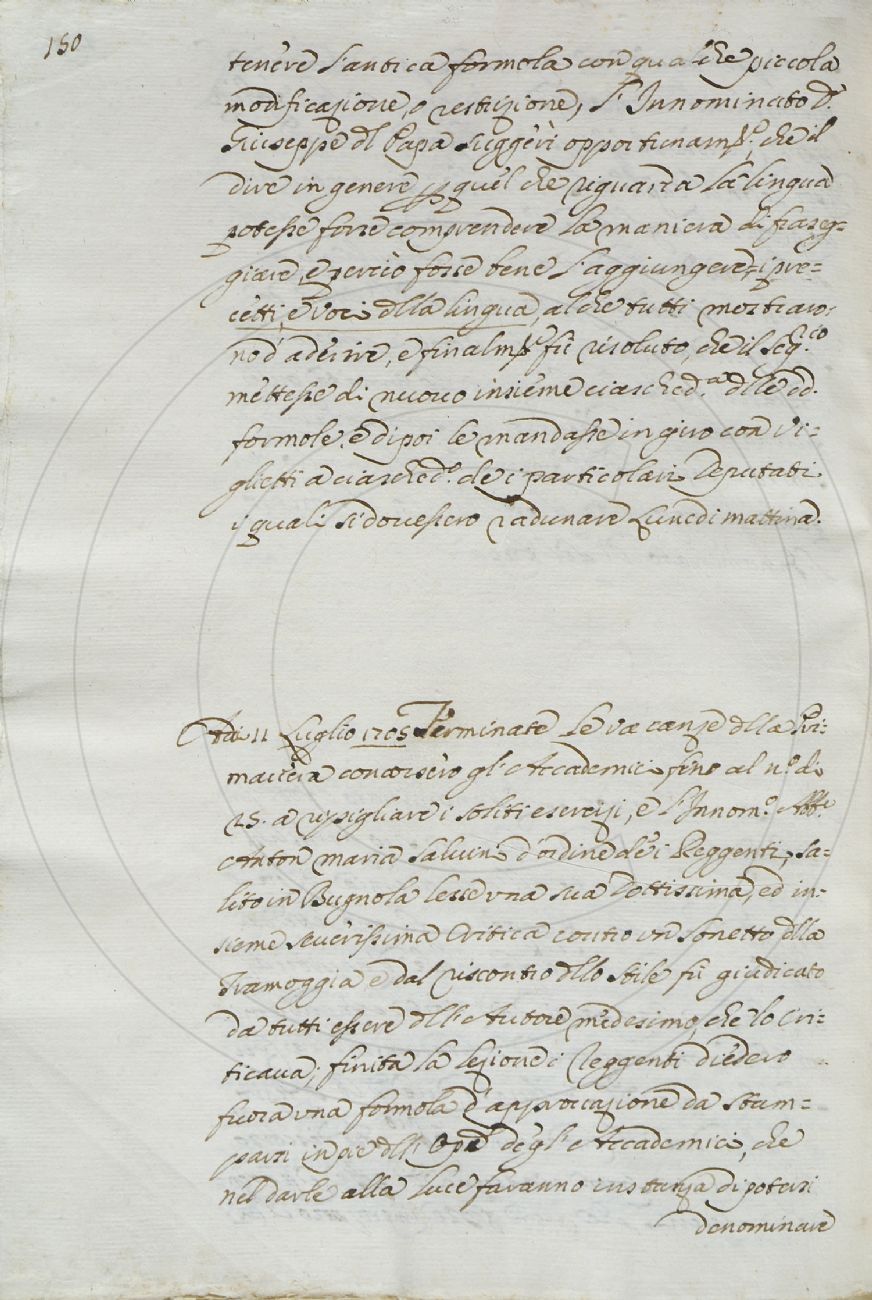 150
tenere l'antica formola con qualche piccola
modificazione, o restrizione, l'Innominato D.
Giuseppe dl Papa suggerì opportunam.te, che il
dire in genere p quel che riguarda la lingua
potesse forse comprendere la maniera di fraseg=
giare, e perciò fosse bene l'aggiungere = i pre=
cetti, e voci dlla lingua, al che tutti mostraro=
no d'aderire, e finalm.te fù risoluto, che il Seg.rio
mettesse di nuovo insieme ciasched.a dlle d.
formole, e dipoi le mandasse in giro con vi=
glietti a ciasched.o de i particolari Deputati
i quali si dovessero radunare Lunedi mattina.
Adi 11 Luglio 1705 Terminate le vacanze dlla Pri=
mavera convorsero gl'Accademici fino al n.o di
25. a ripigliare i soliti esercizj, e l'Innom.o Abb.e
Anton maria Salvini d'ordine de i Reggenti, sa=
lito in Bugnola lesse una sua dottissima, ed in=
sieme severissima Critica contro un Sonetto dlla
Tramoggia e dal riscontro dllo stile fù giudicato
da tutti essere dll'Autore medesimo, che lo Cri=
ticava; finita la lezione i Reggenti diedero
fuora una formola d'approvazione da stam=
parsi in piè dll' Op.e degl'Accademici, che
nel darle alla luce faranno instanza di potersi
denominare